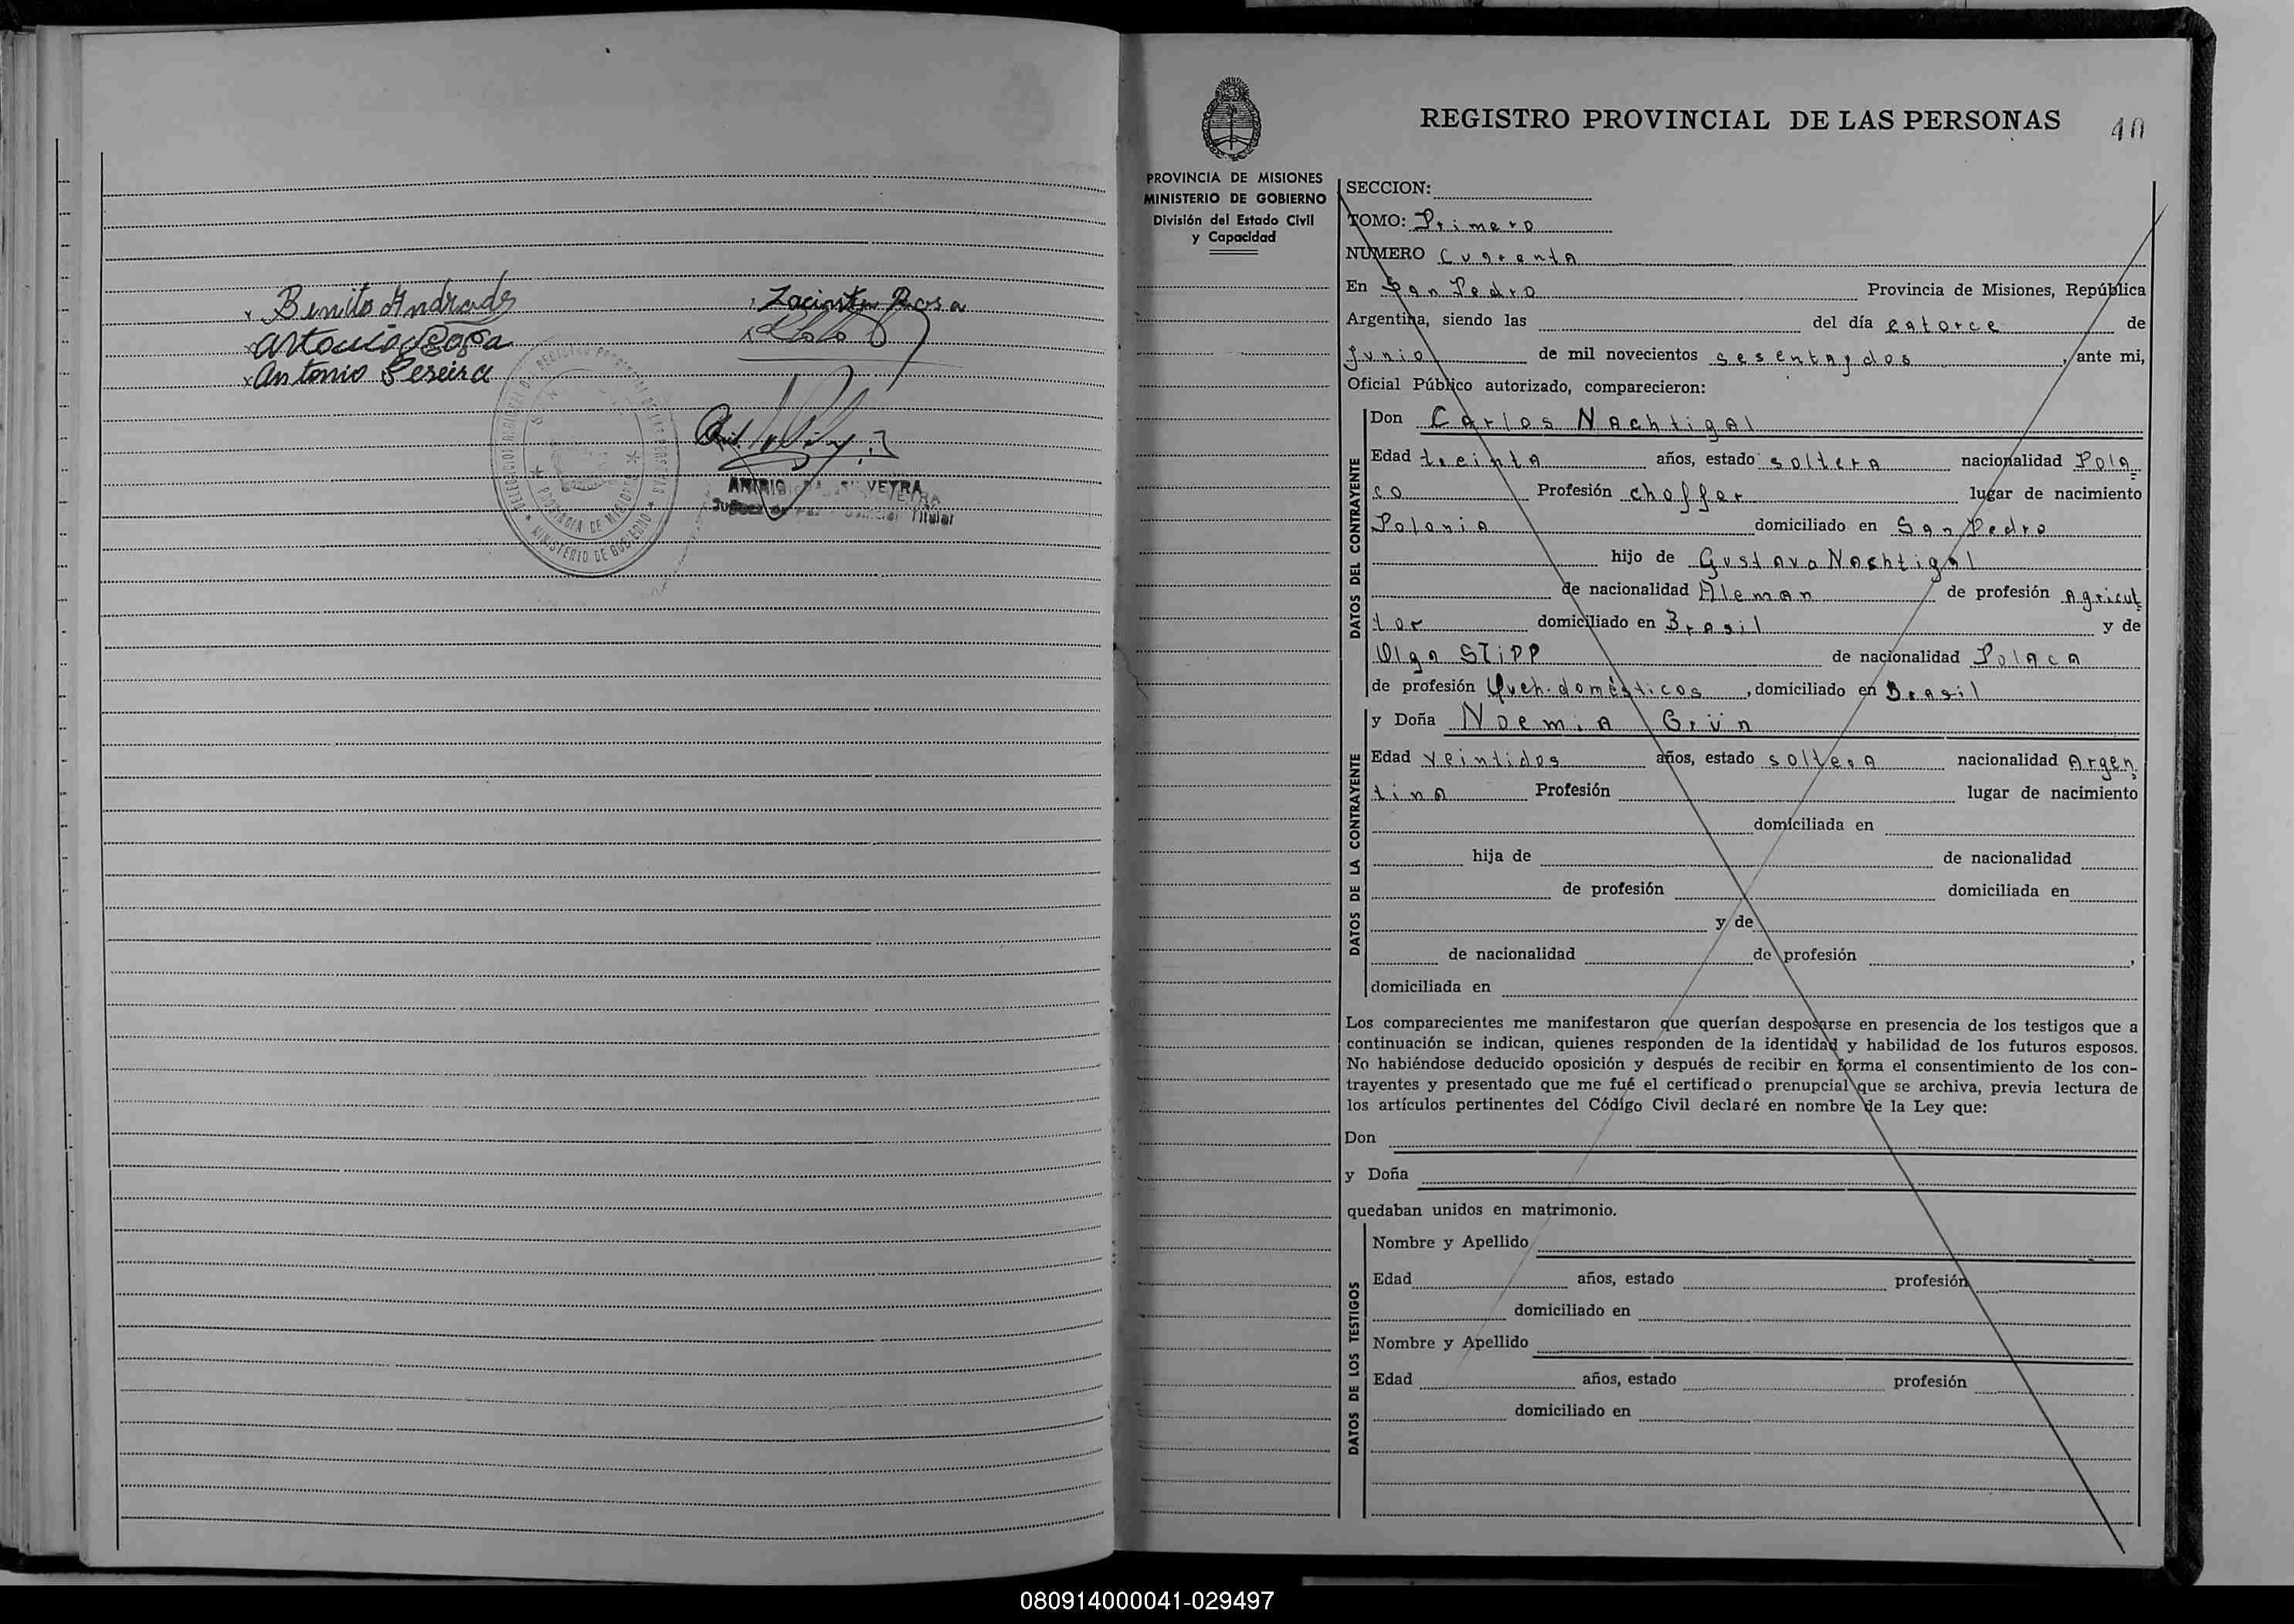 Benito Andrade
Jacinto Rosa
Antonio Rosa
Antonio Pereira
MINISTERIO DE GOBIERNO
PROVINCIA DE MISIONES
Titular
REGISTRO PROVINCIAL DE LAS PERSONAS
40
PROVINCIA DE MISIONES
MINISTERIO DE GOBIERNO
División del Estado Civil
y Capacidad
SECCION:
TOMO: Primero
NUMERO Cuarenta
En San Pedro Provincia de Misiones, República
Argentina, siendo las del día catorce de
Junio de mil novecientos sesenta y dos, ante mi,
Oficial Público autorizado, comparecieron:
DATOS DEL CONTRAYENTE
Don Carlos Nachtigal
Edad treinta años, estado soltero nacionalidad Pola=
co Profesión choffer lugar de nacimiento
Polonia domiciliado en San Pedro
hijo de Gustavo Nachtigal
de nacionalidad Aleman de profesión Agricul=
tor domiciliado en Brasil y de
Olga STiPP de nacionalidad Polaca
de profesión Queh. domésticos, domiciliado en Brasil
DATOS DE LA CONTRAYENTE
y Doña Noemia Grün
Edad veintidos años, estado soltera nacionalidad Argen=
tina Profesión lugar de nacimiento
domiciliada en
hija de de nacionalidad
de profesión domiciliada en
y de
de nacionalidad de profesión ,
domiciliada en
Los comparecientes me manifestaron que querían desposarse en presencia de los testigos que a
continuación se indican, quienes responden de la identidad y habilidad de los futuros esposos.
No habiéndose deducido oposición y después de recibir en forma el consentimiento de los con-
trayentes y presentado que me fué el certificado prenupcial que se archiva, previa lectura de
los artículos pertinentes del Código Civil declaré en nombre de la Ley que:
Don
y Doña
quedaban unidos en matrimonio.
DATOS DE LOS TESTIGOS
Nombre y Apellido
Edad años, estado profesión
domiciliado en
Nombre y Apellido
Edad años, estado profesión
domiciliado en
080914000041-029497